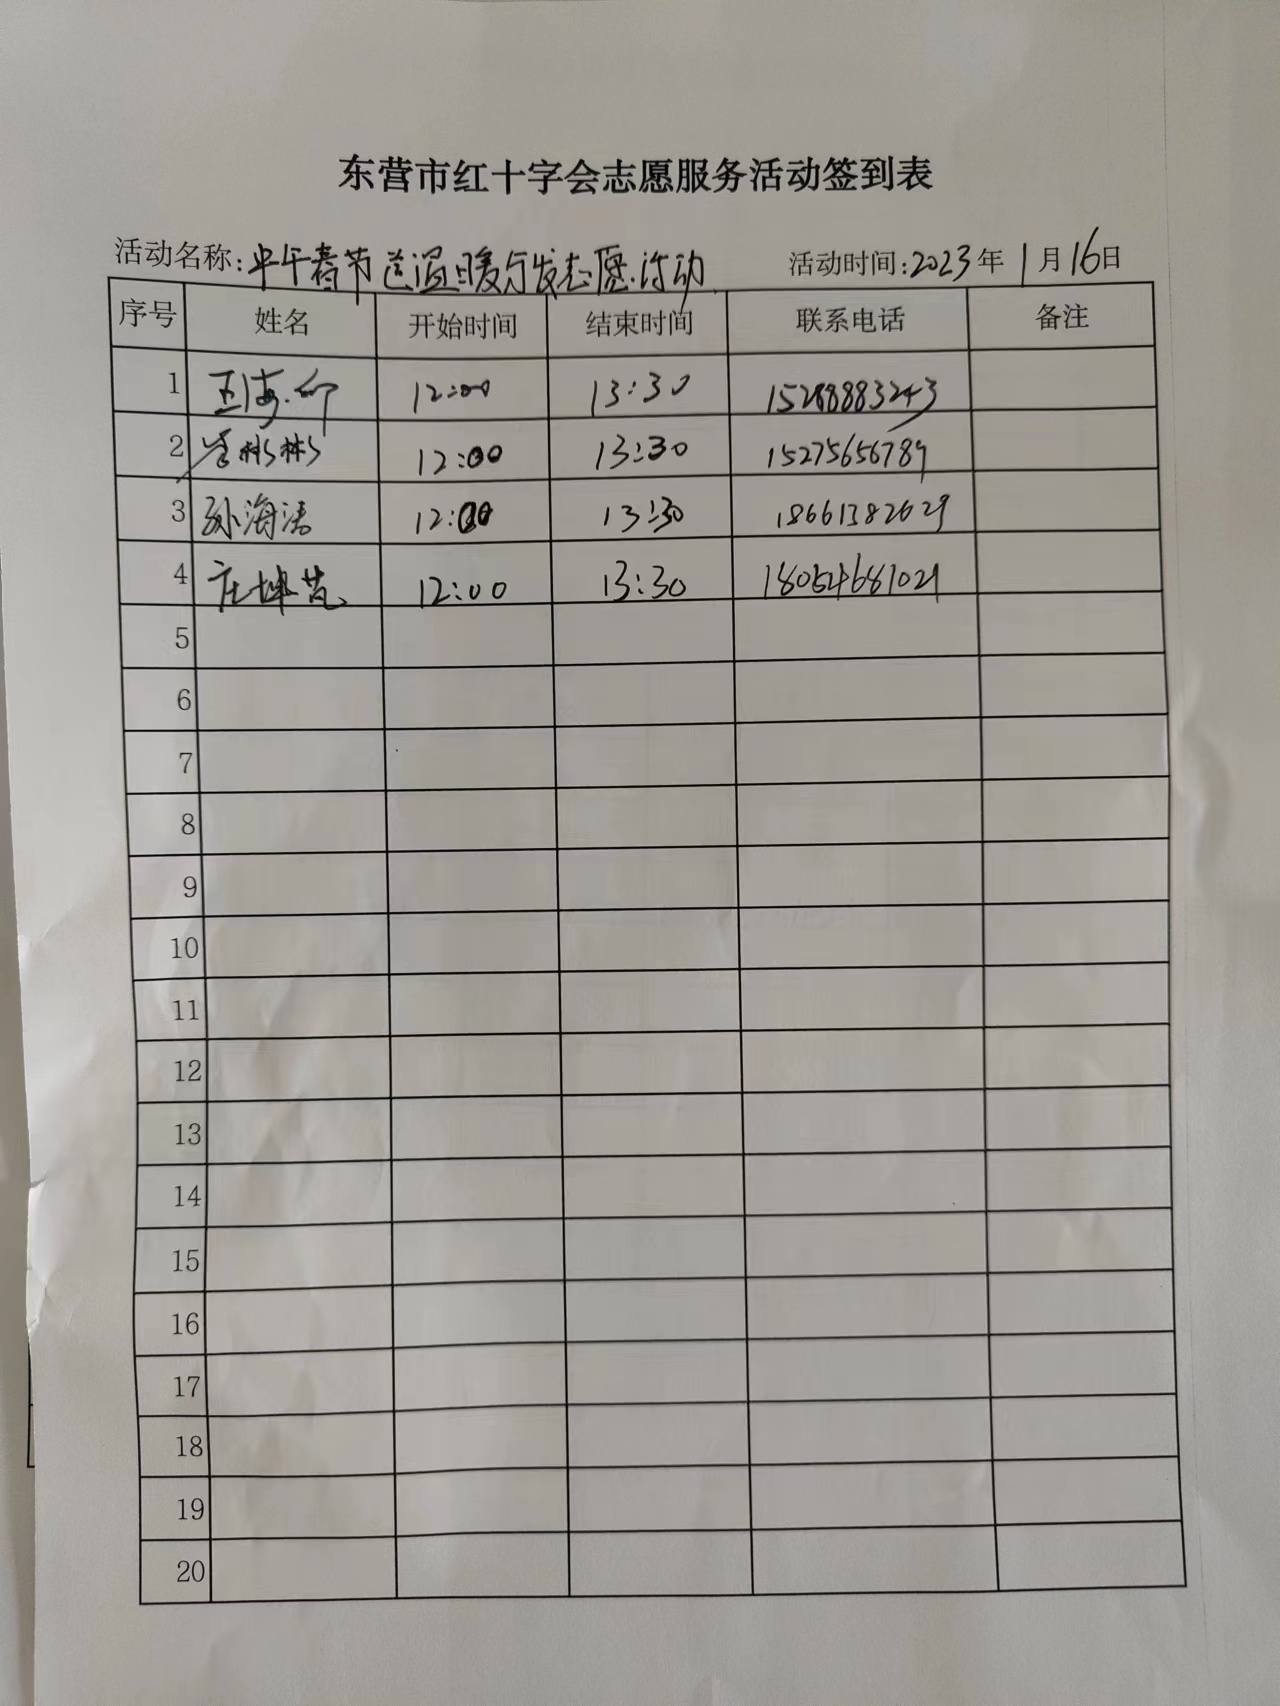 东营市红十字会志愿服务活动签到表
活动名称:中午春节送温暖出发志愿活动 活动时间:2023年1月16日
序号 姓名 开始时间 结束时间 联系电话 备注
1 王海 12:00 13:30 15288883243
2 彬彬 12:00 13:30 15275656789
3 孙海涛 12:00 13:30 18661382629
4 庄坤 12:00 13:30 18054681021
5
6
7
8
9
10
11
12
13
14
15
16
17
18
19
20